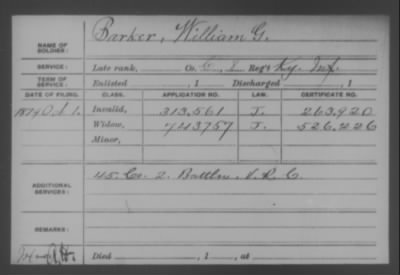 NAME OF SOLDIER: Barker, William G.
SERVICE: Late rank, Co. Reg't Ky. Inf.
TERM OF SERVICE: Enlisted , 1 Discharged , 1
DATE OF FILING. CLASS. APPLICATION NO. LAW. CERTIFICATE NO.
1879 Oct 1. Invalid, 313,561 J. 263,920
Widow, 743757 J. 526,226
Minor,
ADDITIONAL SERVICES: 45. Co. 2. Battln. V. R. C.
REMARKS:
Died , 1 , at